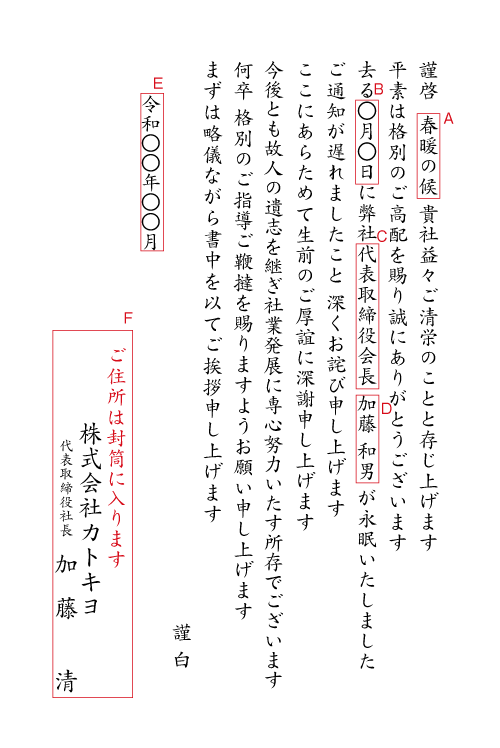 謹啓 春暖の候 貴社益々ご清栄のことと存じ上げます
A
平素は格別のご高配を賜り誠にありがとうございます
去る〇月〇日に弊社代表取締役会長 加藤 和男 が永眠いたしました
B
C
D
ご通知が遅れましたこと 深くお詫び申し上げます
ここにあらためて生前のご厚誼に深謝申し上げます
今後とも故人の遺志を継ぎ社業発展に専心努力いたす所存でございます
何卒 格別のご指導ご鞭撻を賜りますようお願い申し上げます
まずは略儀ながら書中を以てご挨拶申し上げます
謹白
E
令和〇〇年〇〇月
F
ご住所は封筒に入ります
株式会社カトキヨ
代表取締役社長 加藤 清